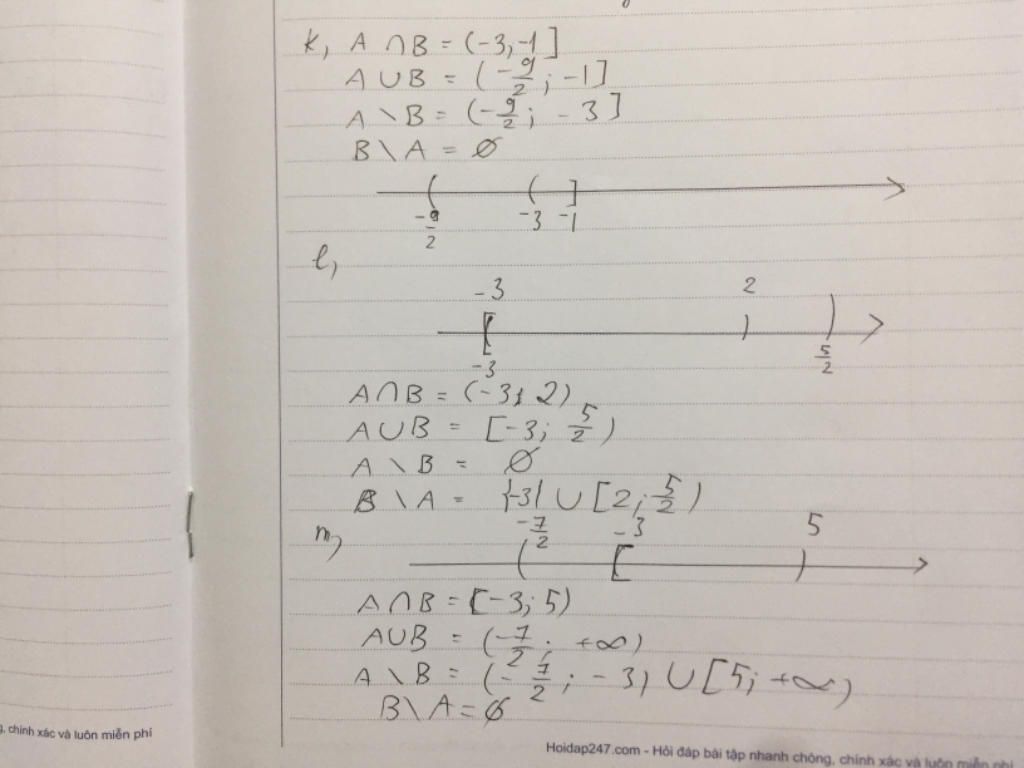 k, A ∩ B = (-3, -1]
A ∪ B = (-9/2; -1]
A \ B = (-9/2; -3]
B \ A = ∅
-9/2 -3 -1
l,
-3 2
-3 5/2
A ∩ B = (-3; 2)
A ∪ B = [-3; 5/2)
A \ B = ∅
B \ A = {-3} ∪ [2; 5/2)
m, -7/2 -3 5
A ∩ B = [-3; 5)
A ∪ B = (-7/2; +∞)
A \ B = (-7/2; -3) ∪ [5; +∞)
B \ A = ∅
, chính xác và luôn miễn phí
Hoidap247.com - Hỏi đáp bài tập nhanh chóng, chính xác và luôn miễn phí